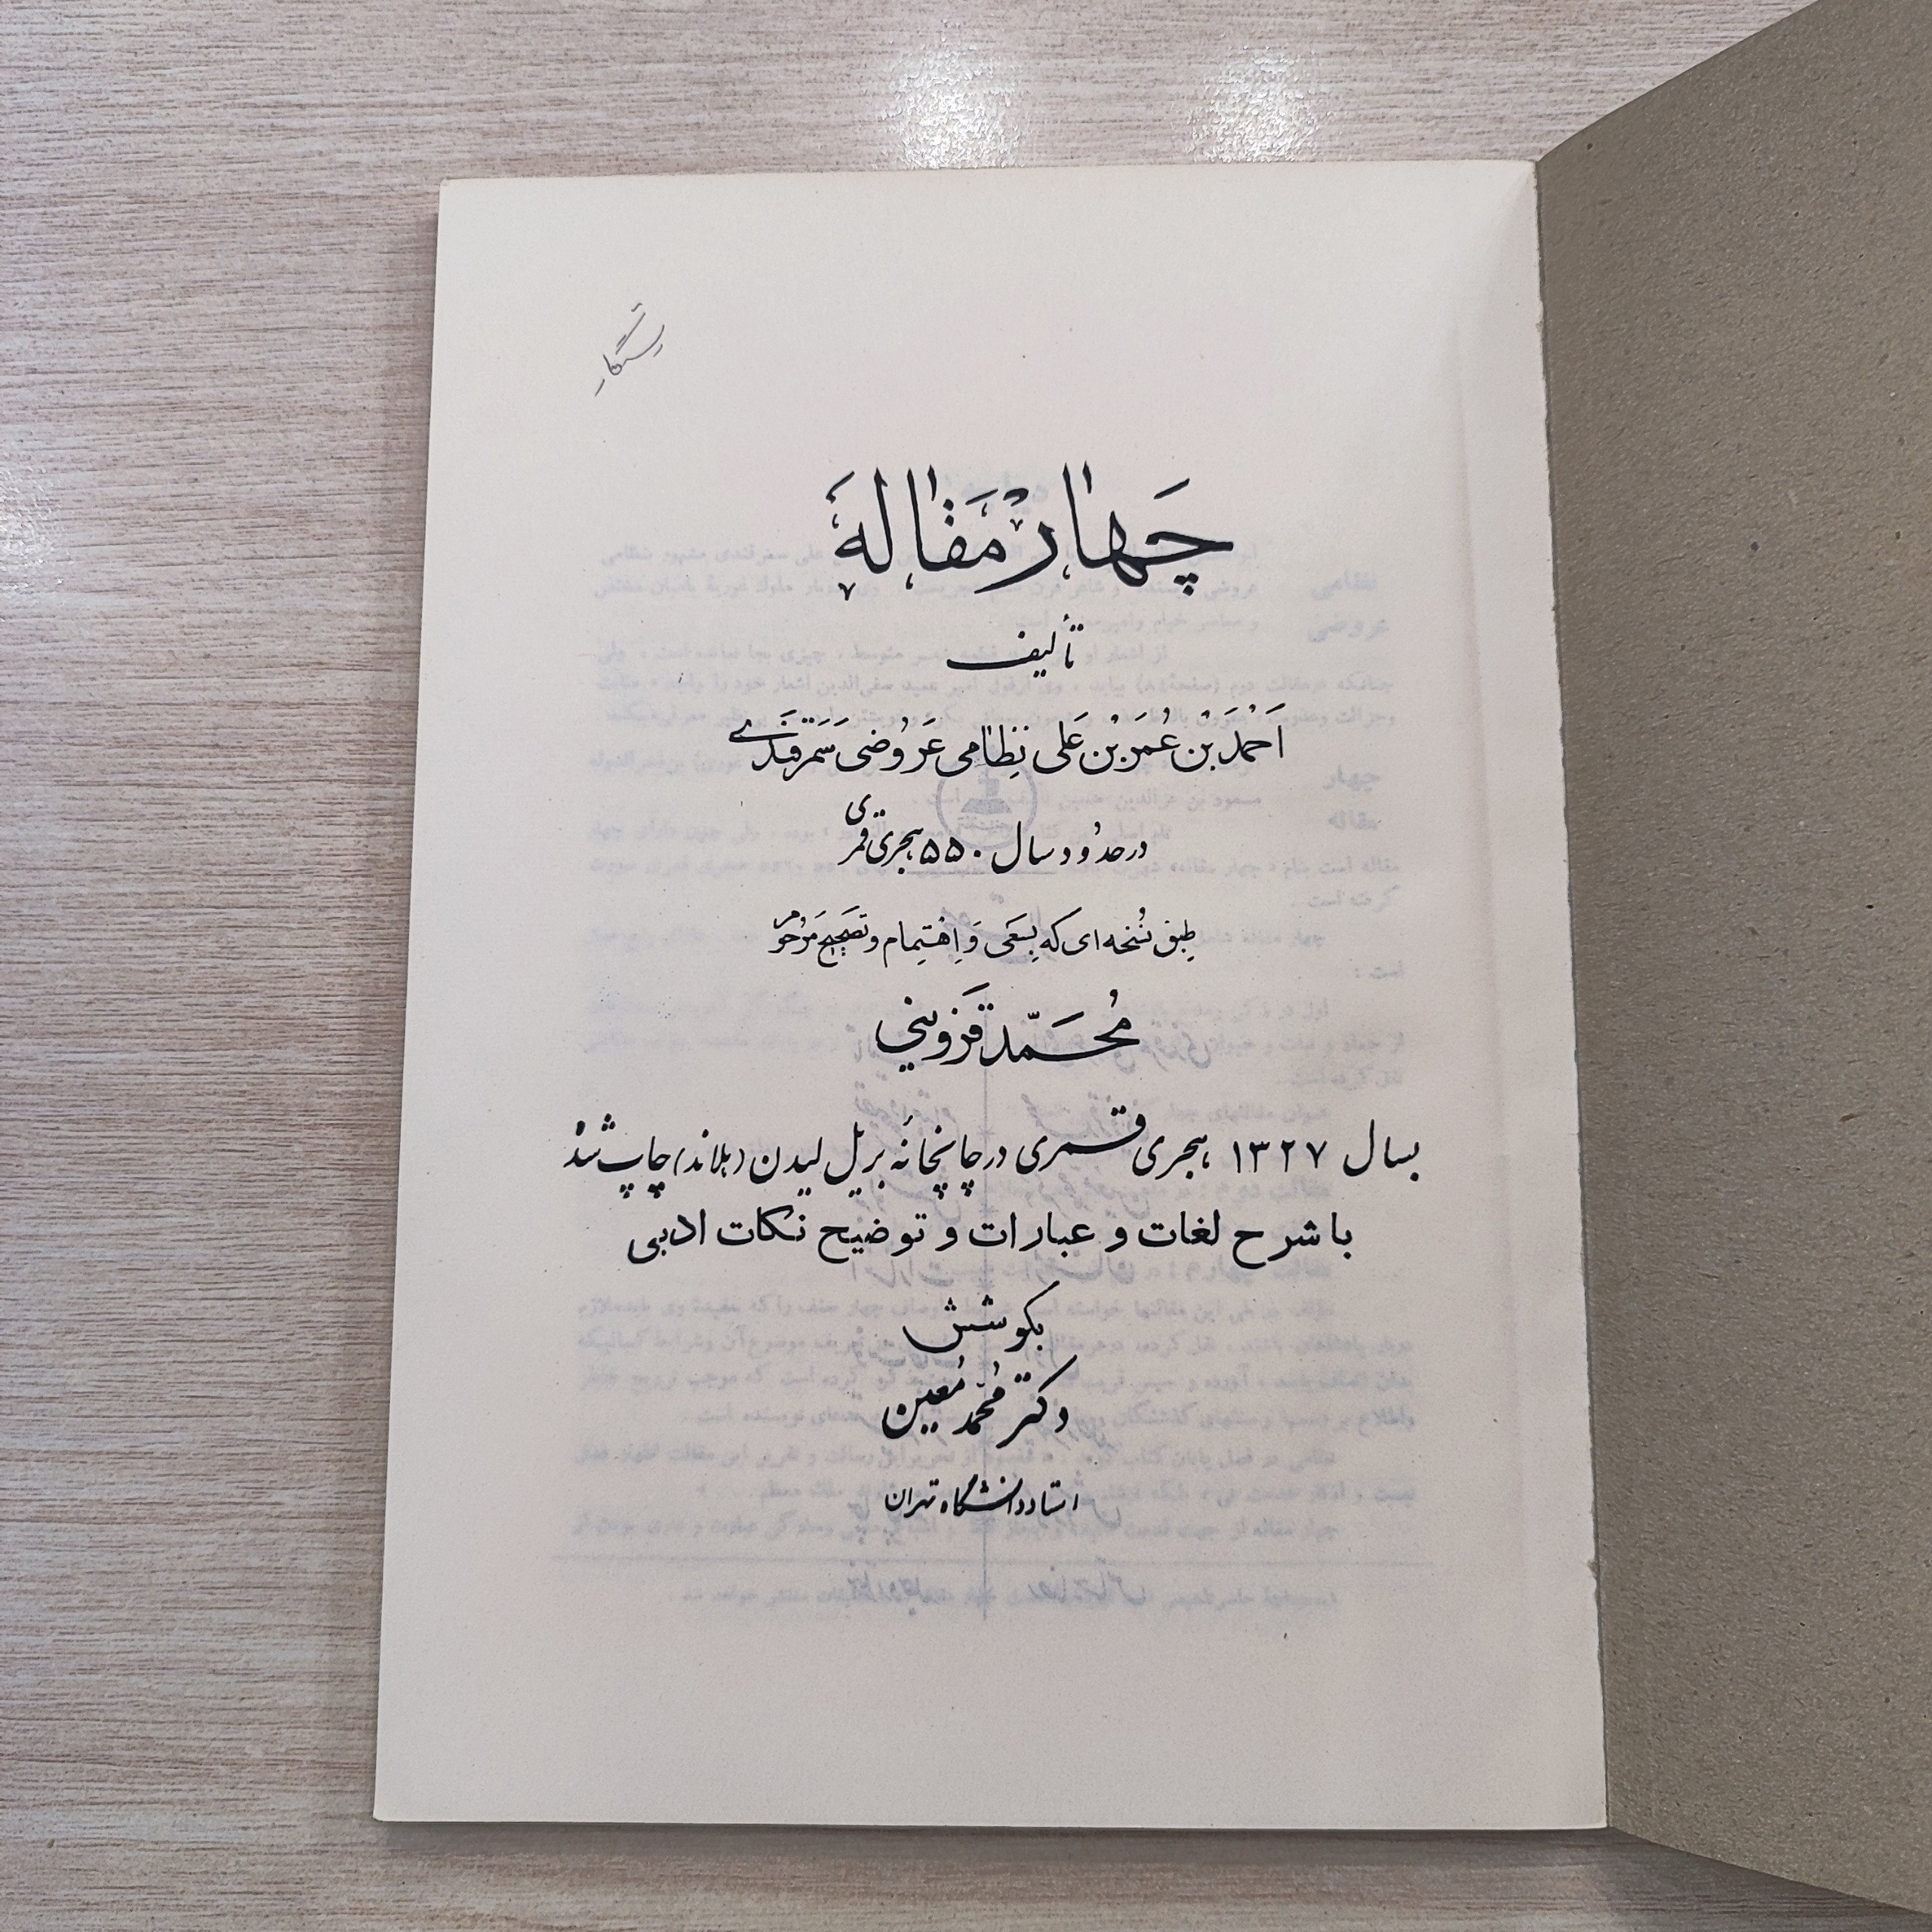 چَهارْ مَقالَهْ
تألیف
اَحْمَدْ بْنِ عُمَرَ بْنِ عَلی نِظامی عَرُوضی سَمَرْقَنْدی
در حدُود سال ۵۵۰ هجری قمری
طِبق نُسْخه‌ای که بِسَعی وَ اِهْتِمام و تصحیح مَرْحوُمِ
مُحَمَّد قَزوینی
بسال ۱۳۲۷ هجری قمری در چاپخانهٔ بریل لیدن (هلاند) چاپ شد
با شرح لغات و عبارات و توضیح نکات ادبی
بکوشش
دکتر مُحَمَّد مُعین
استاد دانشگاه تهران